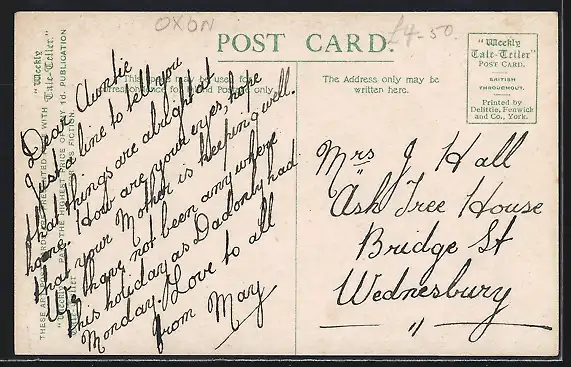 OXON
£4-50.
POST CARD.
This space may be used for
correspondence for Inland Postage only.
The Address only may be
written here.
"Weekly
Tale-Teller"
POST CARD.
BRITISH
THROUGHOUT.
Printed by
Delittle, Fenwick
and Co., York.
Dear Auntie
Just a line to tell you
that things are alright at
home. How are your eyes, hope
that your Mother is keeping well.
We have not been anywhere
this holiday as Dad only had
Monday. Love to all
from May
Mrs J Hall
Ash Tree House
Bridge St
Wednesbury
"Weekly
Tale-Teller"